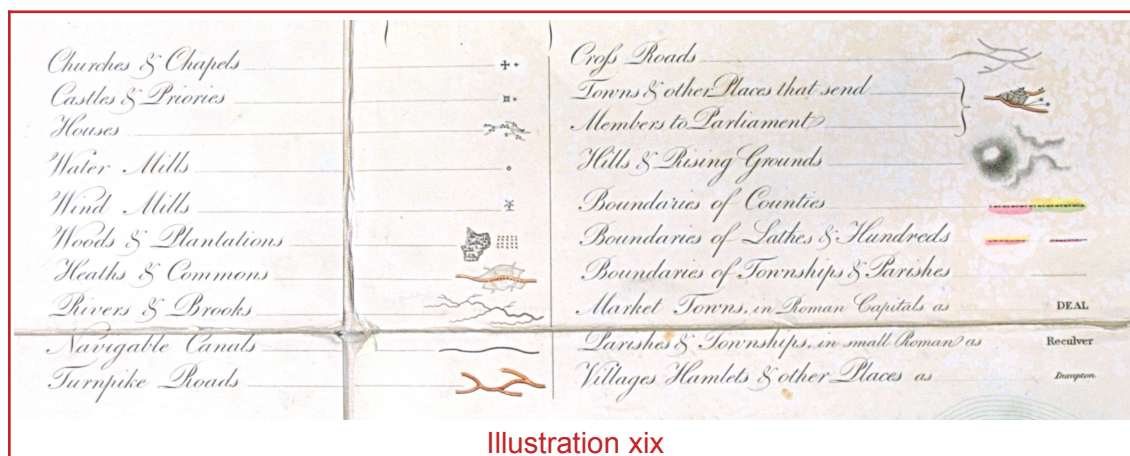 Churches & Chapels
Castles & Priories
Houses
Water Mills
Wind Mills
Woods & Plantations
Heaths & Commons
Rivers & Brooks
Navigable Canals
Turnpike Roads
Croſs Roads
Towns & other Places that send
Members to Parliament
Hills & Rising Grounds
Boundaries of Counties
Boundaries of Lathes & Hundreds
Boundaries of Townships & Parishes
Market Towns, in Roman Capitals as DEAL
Parishes & Townships, in small Roman as Reculver
Villages Hamlets & other Places as Dumpton
Illustration xix